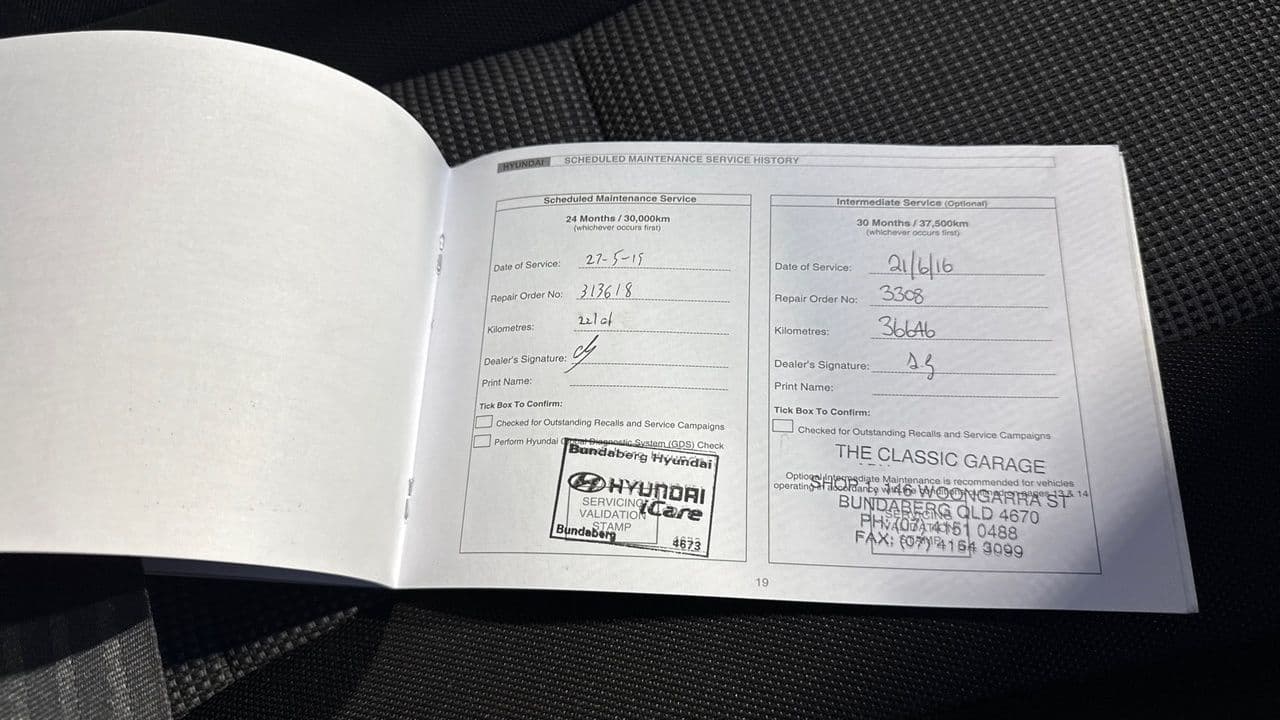 HYUNDAI SCHEDULED MAINTENANCE SERVICE HISTORY
Scheduled Maintenance Service
24 Months / 30,000km
(whichever occurs first)
Date of Service: 27-5-15
Repair Order No: 313618
Kilometres:
Dealer's Signature:
Print Name:
Tick Box To Confirm:
Checked for Outstanding Recalls and Service Campaigns
Perform Hyundai Global Diagnostic System (GDS) Check
Bundaberg Hyundai
HYUNDAI
iCare
SERVICING
VALIDATION
STAMP
Bundaberg 4673
Intermediate Service (Optional)
30 Months / 37,500km
(whichever occurs first)
Date of Service: 21/6/16
Repair Order No: 3308
Kilometres: 36646
Dealer's Signature:
Print Name:
Tick Box To Confirm:
Checked for Outstanding Recalls and Service Campaigns
THE CLASSIC GARAGE
Optional Intermediate Maintenance is recommended for vehicles
operating in accordance with the conditions 13 & 14
SHOP 1, 146 WOONGARRA ST
BUNDABERG QLD 4670
PH: (07) 4151 0488
FAX: (07) 4154 3099
SERVICING
VALIDATION
19